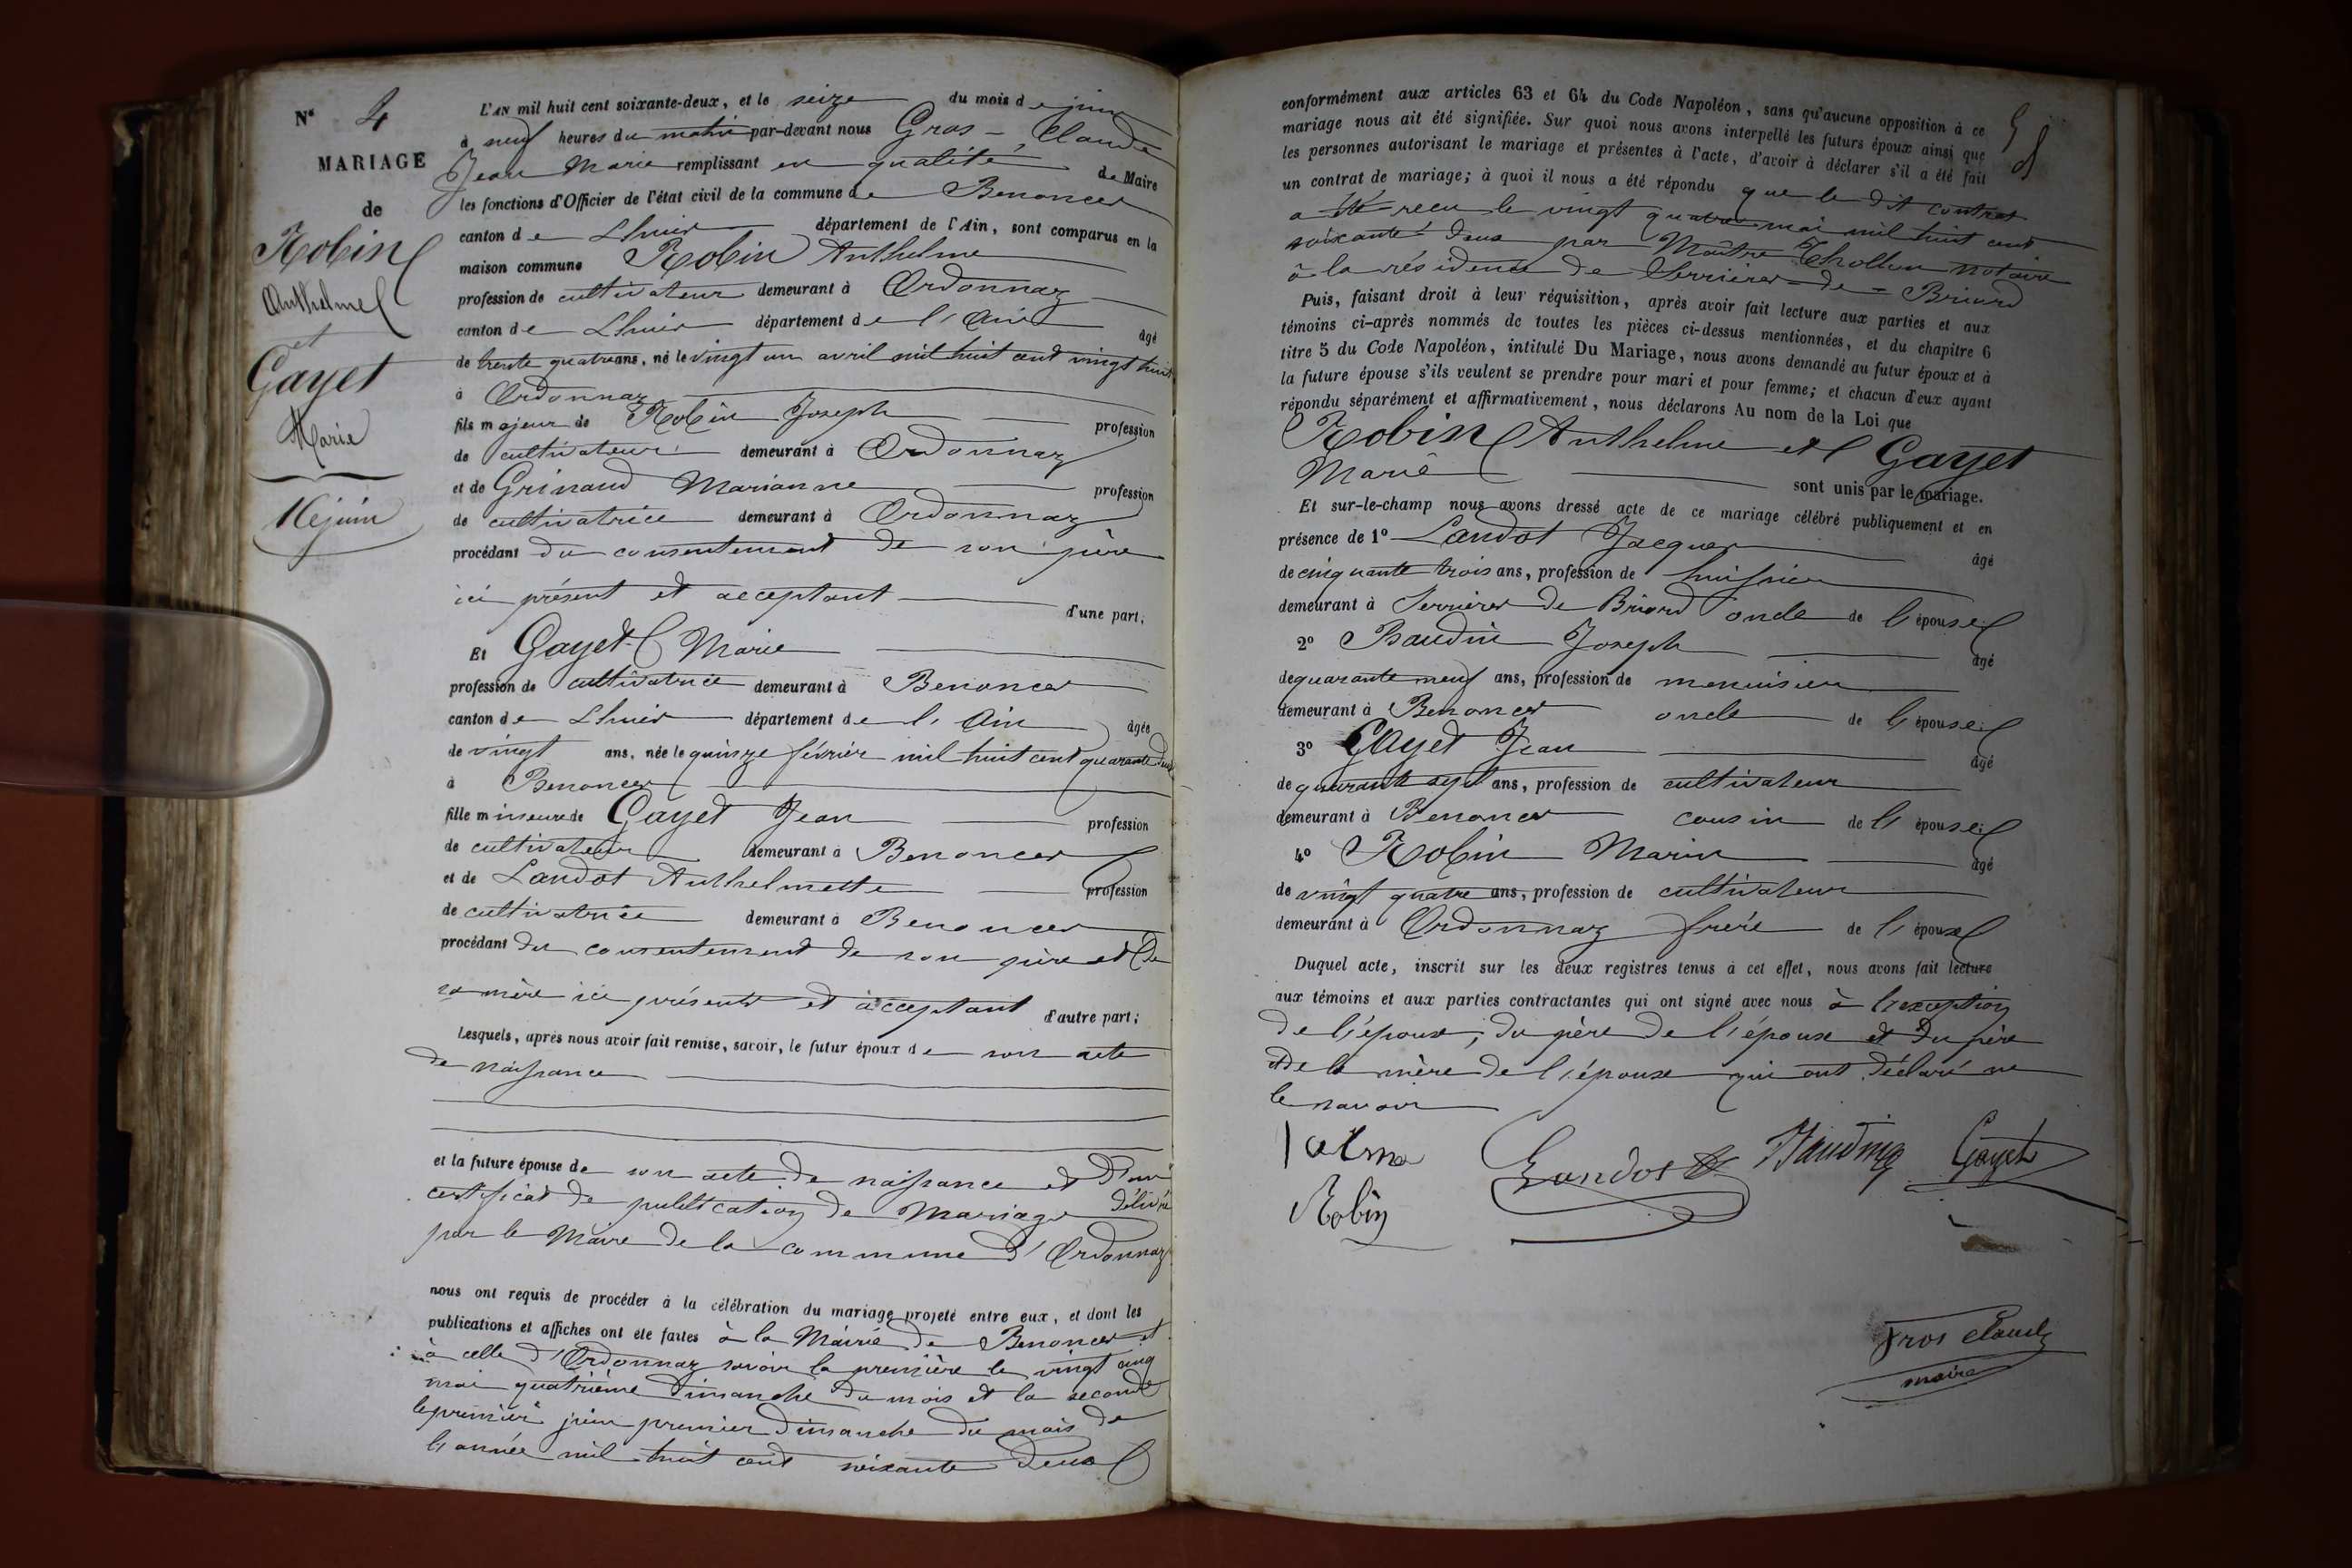 N° 4
MARIAGE
de
Robin
Anthelme
et
Gayet
Marie
16 juin
L'AN mil huit cent soixante-deux, et le seize du mois de juin
à neuf heures du matin par-devant nous Gros, Claude
Jean Marie remplissant en qualité de Maire
les fonctions d'Officier de l'état civil de la commune de Benonces
canton de Lhuis département de l'Ain, sont comparus en la
maison commune Robin Anthelme
profession de cultivateur demeurant à Ordonnaz
canton de Lhuis département de l'Ain âgé
de trente quatre ans, né le vingt un avril mil huit cent vingt huit
à Ordonnaz
fils majeur de Robin Joseph profession
de cultivateur demeurant à Ordonnaz
et de Grinand Marianne profession
de cultivatrice demeurant à Ordonnaz
procédant du consentement de son père
ici présent et acceptant d'une part,
Et Gayet Marie
profession de cultivatrice demeurant à Benonces
canton de Lhuis département de l'Ain âgée
de vingt ans, née le quinze février mil huit cent quarante deux
à Benonces
fille mineure de Gayet Jean profession
de cultivateur demeurant à Benonces
et de Landot Anthelmette profession
de cultivatrice demeurant à Benonces
procédant du consentement de son père et de
sa mère ici présents et acceptant d'autre part;
Lesquels, après nous avoir fait remise, savoir, le futur époux de son acte
de naissance
et la future épouse de son acte de naissance et d'un
certificat de publication de Mariage délivré
par le Maire de la commune d'Ordonnaz
nous ont requis de procéder à la célébration du mariage projeté entre eux, et dont les
publications et affiches ont été faites à la Mairie de Benonces et
à celle d'Ordonnaz savoir la première le vingt cinq
mai quatrième dimanche du mois et la seconde
le premier juin premier dimanche du mois de
l'année mil huit cent soixante deux
conformément aux articles 63 et 64 du Code Napoléon, sans qu'aucune opposition à ce
mariage nous ait été signifiée. Sur quoi nous avons interpellé les futurs époux ainsi que
les personnes autorisant le mariage et présentes à l'acte, d'avoir à déclarer s'il a été fait
un contrat de mariage; à quoi il nous a été répondu que le dit contrat
a été recu le vingt quatre mai mil huit cent
soixante deux par Maître Thollon notaire
à la résidence de Serrières-de-Briord
Puis, faisant droit à leur réquisition, après avoir fait lecture aux parties et aux
témoins ci-après nommés de toutes les pièces ci-dessus mentionnées, et du chapitre 6
titre 5 du Code Napoléon, intitulé Du Mariage, nous avons demandé au futur époux et à
la future épouse s'ils veulent se prendre pour mari et pour femme; et chacun d'eux ayant
répondu séparément et affirmativement, nous déclarons Au nom de la Loi que
Robin Anthelme et Gayet
Marie sont unis par le mariage.
Et sur-le-champ nous avons dressé acte de ce mariage célébré publiquement et en
présence de 1° Landot Jacques âgé
de cinquante trois ans, profession de huissier
demeurant à Serrières de Briord oncle de l'épouse
2° Baudin Joseph âgé
de quarante neuf ans, profession de menuisier
demeurant à Benonces oncle de l'épouse
3° Gayet Jean âgé
de quarante sept ans, profession de cultivateur
demeurant à Benonces cousin de l'épouse
4° Robin Marin âgé
de vingt quatre ans, profession de cultivateur
demeurant à Ordonnaz frère de l'époux
Duquel acte, inscrit sur les deux registres tenus à cet effet, nous avons fait lecture
aux témoins et aux parties contractantes qui ont signé avec nous à l'exception
de l'époux, du père de l'époux et du père
et de la mère de l'épouse qui ont déclaré ne
le savoir
Landot Baudin Gayet
Robin
Gros Claude
maire